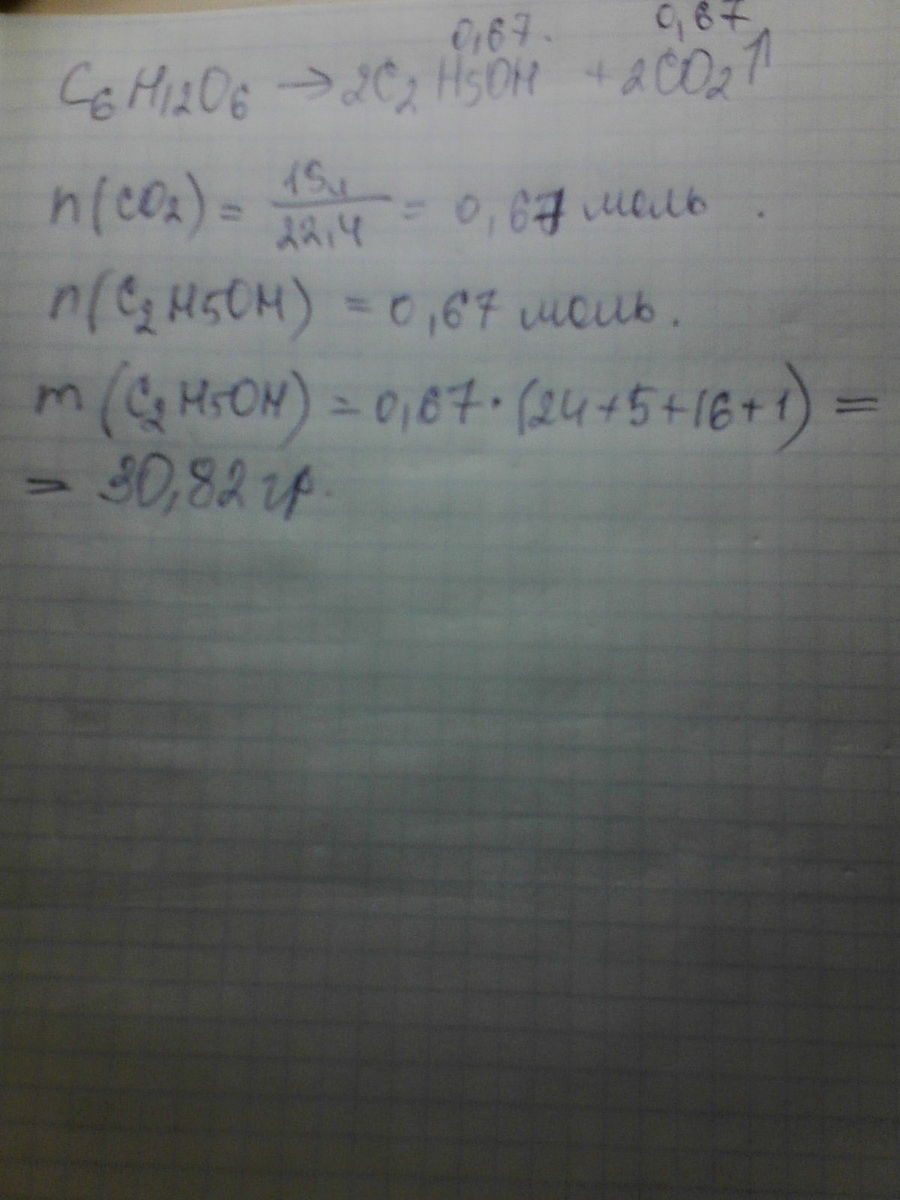 0,67. 0,67
C6H12O6 → 2C2H5OH + 2CO2↑
n(CO2) = 15л / 22,4 = 0,67 моль.
n(C2H5OH) = 0,67 моль.
m(C2H5OH) = 0,67·(24+5+16+1) =
= 30,82 гр.